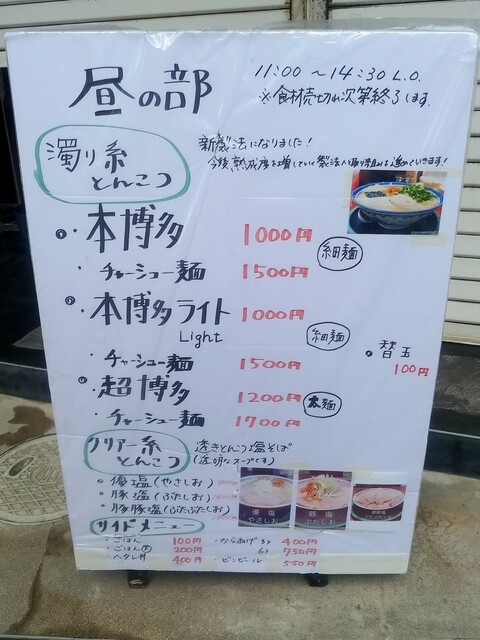 昼の部
11:00 ~14:30 L.O.
※食材売切れ次第終了します。
濁り系
とんこつ
新製法になりました!
今後熟成度を増していく製法に取り組み進めていきます!
本博多 1000円
細麺
チャーシュー麺 1500円
本博多ライト 1000円
Light
細麺
替玉
100円
チャーシュー麺 1500円
超博多 1200円
太麺
チャーシュー麺 1700円
クリアー系
とんこつ
透きとんこつ塩そば
(透明なスープです)
優塩(やさしお)
豚塩(ぶたしお)
豚豚塩(ぶたぶたしお)
優塩
やさしお
豚塩
ぶたしお
サイドメニュー
ごはん 100円
からあげ 3ヶ 400円
ごはん(大) 200円
6ヶ 750円
ヘタレ丼 400円
ビンビール 550円